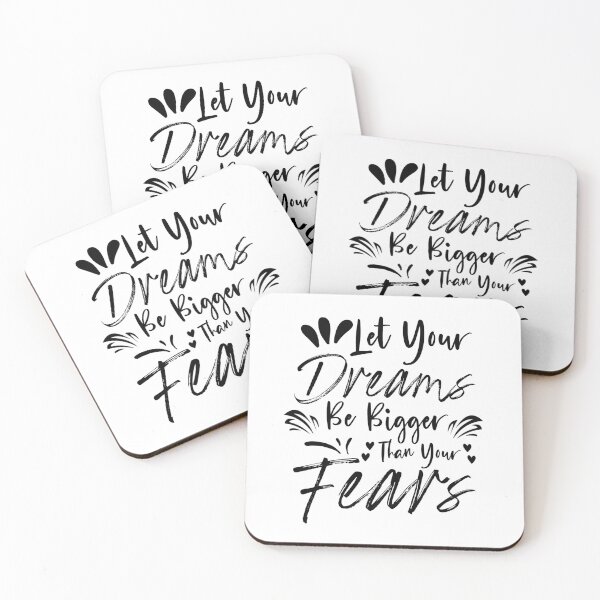 Let Your
Dreams
Be Bigger
Your
Let Your
Dreams
Be Bigger
Than Your
Let Your
Dreams
Be Bigger
Than
Fears
Let Your
Dreams
Be Bigger
Than Your
Fears